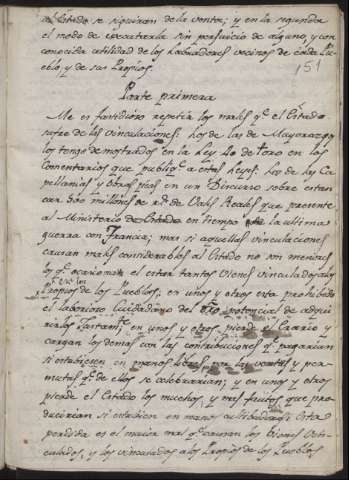 al Estado se siguiran de la venta; y en la segunda
el modo de executarla sin perjuicio de alguno, y con
conocida utilidad de los Labradores vecinos de cada Pue-
blo, y de sus Propios.
151
Parte primera
Me es fastidioso repetir los males q.e el Estado
sufre de las vinculaciones: Los de las de Mayorazgo
los tengo demostrados en la Ley 40 de Toro en los
Comentarios que publiq.e a estas Leyes. Los de las Ca-
pellanias y obras pias en un Discurso sobre
car 300 millones de r.s de Vales Reales que presente
al Ministerio de Estado en tiempo de la ultima
guerra con Francia; mas si aquellas vinculaciones
causan males considerables al Estado no son menores
los q.e ocasiona el estar tantos bienes vinculados a los
Propios de los Pueblos; en unos y otros esta prohibido
el laborioso Ciudadano del potencial de adqui-
rirlos; en unos y otros pierde el Erario y
cargan los demas con las contribuciones q.e pagarian
si estubiesen en manos libres por las ventas y per-
mutas q.e de ellos se celebrarian; y en unos y otros
pierde el Estado los muchos, y mas frutos que pro-
ducirian si estubiesen en manos
perdida es el maior mal q.e causan los bienes Vin-
culados, y los vinculados a los Propios de los Pueblos